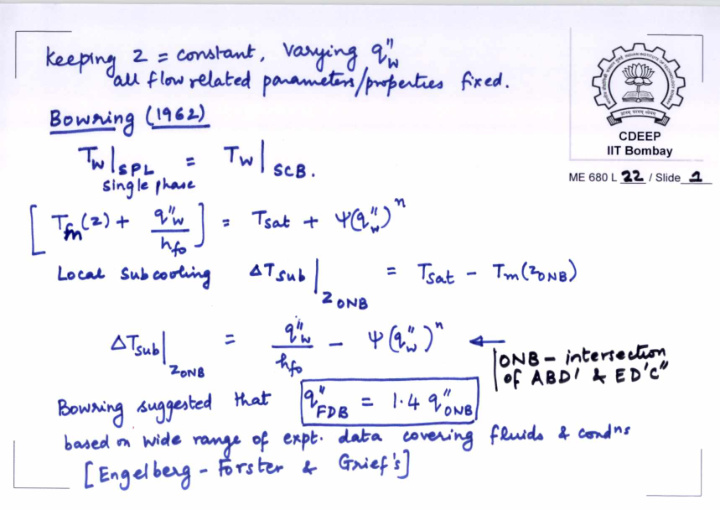 Keeping z = constant, varying q"w
all flow related parameters/properties fixed.
CDEEP
IIT Bombay
ME 680 L 22 / Slide 1
Bowring (1962)
Tw|SPL = Tw|SCB.
single phase
[Tm(z) + q"w/hfo] = Tsat + Ψ(q"w)^n
Local subcooling ΔTsub|zONB = Tsat - Tm(zONB)
ΔTsub|zONB = q"w/hfo - Ψ(q"w)^n ←
ONB - intersection
of ABD' & ED'C"
Bowring suggested that q"FDB = 1.4 q"ONB
based on wide range of expt. data covering fluids & condns
[Engelberg - Forster & Grief's]